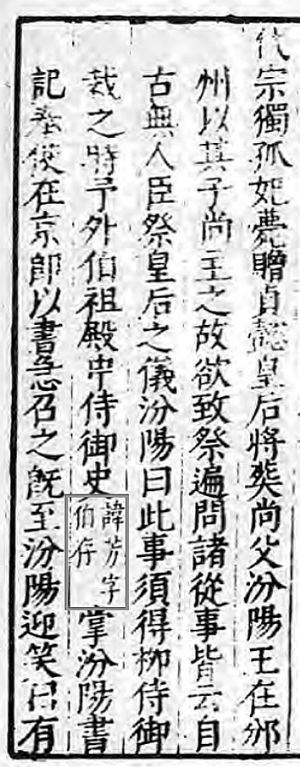 代宗獨孤妃薨贈貞懿皇后將葬尚父汾陽王在邠
州以其子尚主之故欲致祭遍問諸從事皆云自
古無人臣祭皇后之儀汾陽曰此事須得栁侍御
裁之時予外伯祖殿中侍御史諱芳字伯存掌汾陽書
記奉使在京即以書急召之既至汾陽迎笑曰有